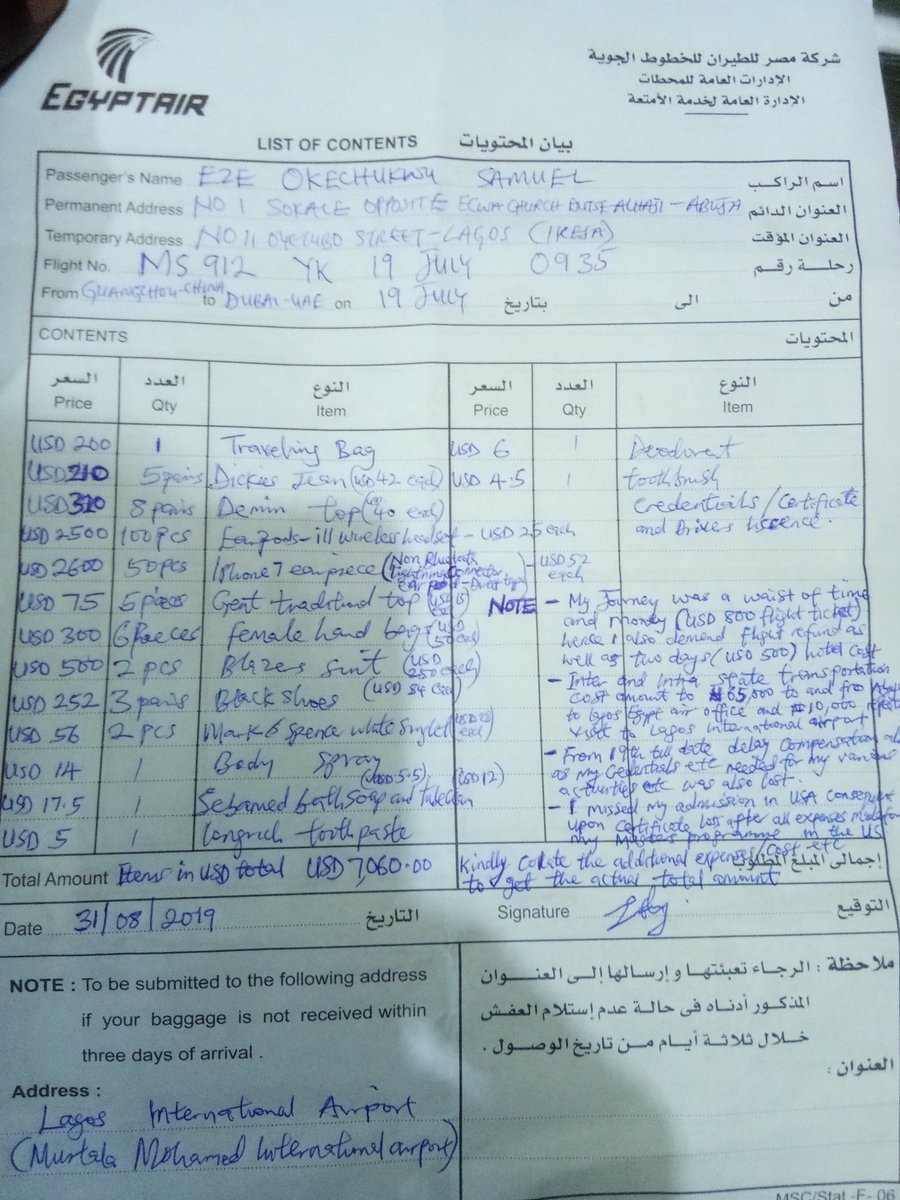 EGYPTAIR
شركة مصر للطيران للخطوط الجوية
الإدارات العامة للمحطات
الإدارة العامة لخدمة الأمتعة
LIST OF CONTENTS بيان المحتويات
Passenger's Name EZE OKECHUKWU SAMUEL اسم الراكب
Permanent Address NO 1 SOKALE OPPOSITE ECWA CHURCH DUTSE-ALHAJI-ABUJA العنوان الدائم
Temporary Address NO 11 OYETUBO STREET-LAGOS (IKEJA) العنوان المؤقت
Flight No. MS 912 YK 19 JULY 0935 رحلة رقم
From GUANGZHOU-CHINA to DUBAI-UAE on 19 JULY بتاريخ الى من
CONTENTS المحتويات
السعر العدد النوع السعر العدد النوع
Price Qty Item Price Qty Item
USD 200 1 Traveling Bag USD 6 1 Deodorent
USD 210 5 pairs Dickies Jean (USD 42 each) USD 4.5 1 toothbrush
USD 320 8 pairs Demin top (40 each) credentials/Certificate
and Drivers liscence.
USD 2500 100 pcs Earpods-iii wireless headset - USD 25 each
USD 2600 50 pcs Iphone 7 earpiece (Non Lightning Connector - USD 52 each
USD 75 5 pieces Gent traditional top (USD 15
USD 300 6 Pieces female hand bag (USD 50 each)
USD 500 2 pcs Blazer suit (USD 250 each)
USD 252 3 pairs Black shoes (USD 84 each)
USD 56 2 pcs Mark 6 spence white singlet (USD 28 each)
USD 14 1 Body spray
USD 17.5 1 Sebamed bath soap (USD 5.5) and (USD 12)
USD 5 1 Longrich toothpaste
NOTE - My Journey was a waist of time
and money (USD 800 flight ticket)
hence I also demand flight refund as
well as two days (USD 500) hotel cost
- Inter and intra state transportation
cost amount to ₦65,000 to and fro Abuja
to lagos Egypt air office and ₦10,000
visit to Lagos international airport
- From 19th till date delay compensation
as my Credentials etc needed for my various
activities etc was also lost.
- I missed my admission in USA
upon Certificate loss after all expenses
my Masters programme in the US
Total Amount Items in USD total USD 7,060.00
Kindly collate the additional expenses/cost etc
to get the actual total amount
إجمالى المبلغ المطلوب
Date 31/08/2019 التاريخ
Signature التوقيع
NOTE : To be submitted to the following address
if your baggage is not received within
three days of arrival .
Address :
Lagos International Airport
(Murtala Mohamed International airport)
ملاحظة : الرجاء تعبئتها و إرسالها إلى العنوان
المذكور أدناه فى حالة عدم إستلام العفش
خلال ثلاثة أيام من تاريخ الوصول .
العنوان :
MSC/Stat -F- 06